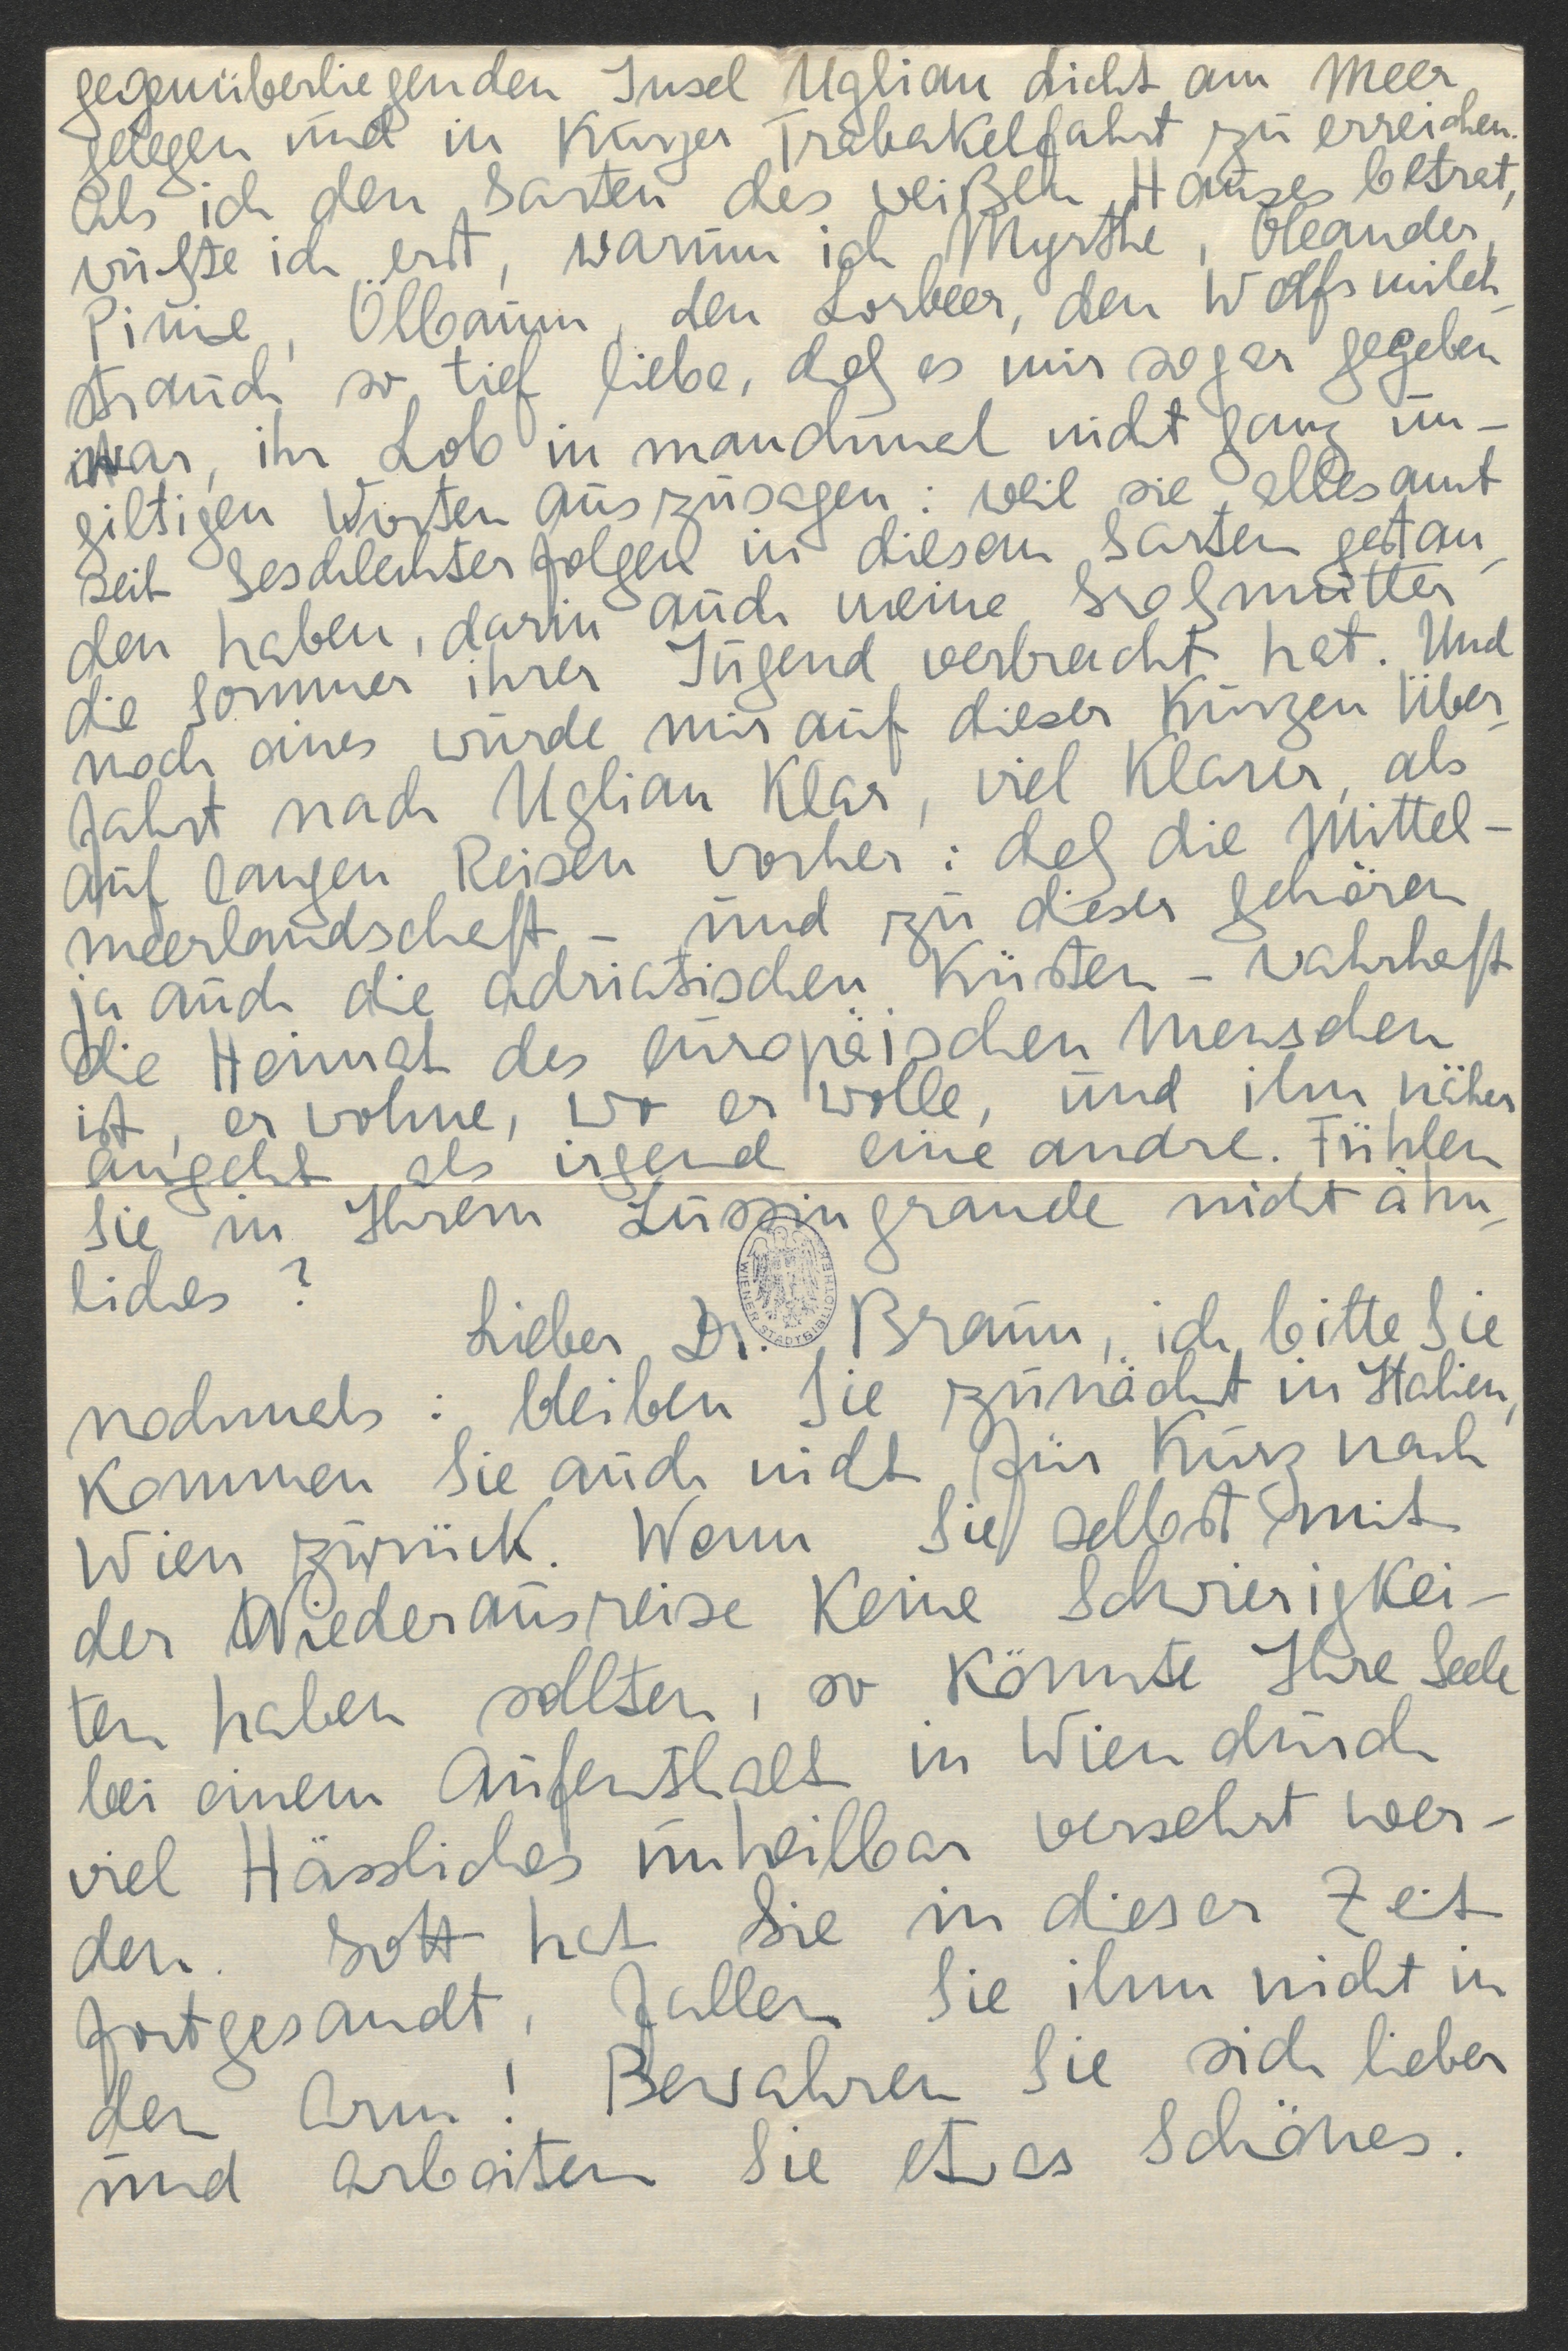 gegenüberliegenden Insel Uglian dicht am Meer
gelegen und in kurzer Trabakelfahrt zu erreichen.
Als ich den Garten des weißen Hauses betrat,
wußte ich erst, warum ich Myrthe, Oleander,
Pinie, Ölbaum, den Lorbeer, den Wolfsmilch-
strauch so tief liebe, daß es mir sogar gegeben
war, ihr Lob in manchmal nicht ganz un-
giltigen Worten auszusagen: weil sie allesamt
seit Geschlechterfolgen in diesem Garten gestan-
den haben, darin auch meine Großmutter
die Sommer ihrer Jugend verbracht hat. Und
noch eines wurde mir auf dieser kurzen Über-
fahrt nach Uglian klar, viel klarer, als
auf langen Reisen vorher: daß die Mittel-
meerlandschaft – und zu dieser gehören
ja auch die adriatischen Küsten – wahrhaft
die Heimat des europäischen Menschen
ist, er wohne, wo er wolle, und ihn näher
angeht als irgend eine andre. Fühlen
Sie in Ihrem Lussingrande nicht ähn-
liches?
Lieber Dr. Braun, ich bitte Sie
nochmals: bleiben Sie zunächst in Italien,
kommen Sie auch nicht für kurz nach
Wien zurück. Wenn Sie selbst mit
der Wiederausreise keine Schwierigkei-
ten haben sollten, so könnte Ihre Seele
bei einem Aufenthalt in Wien durch
viel Hässliches unheilbar versehrt wer-
den. Gott hat Sie in dieser Zeit
fortgesandt, fallen Sie ihm nicht in
den Arm! Bewahren Sie sich lieber
und arbeiten Sie etwas Schönes.
WIENER STADTBIBLIOTHEK